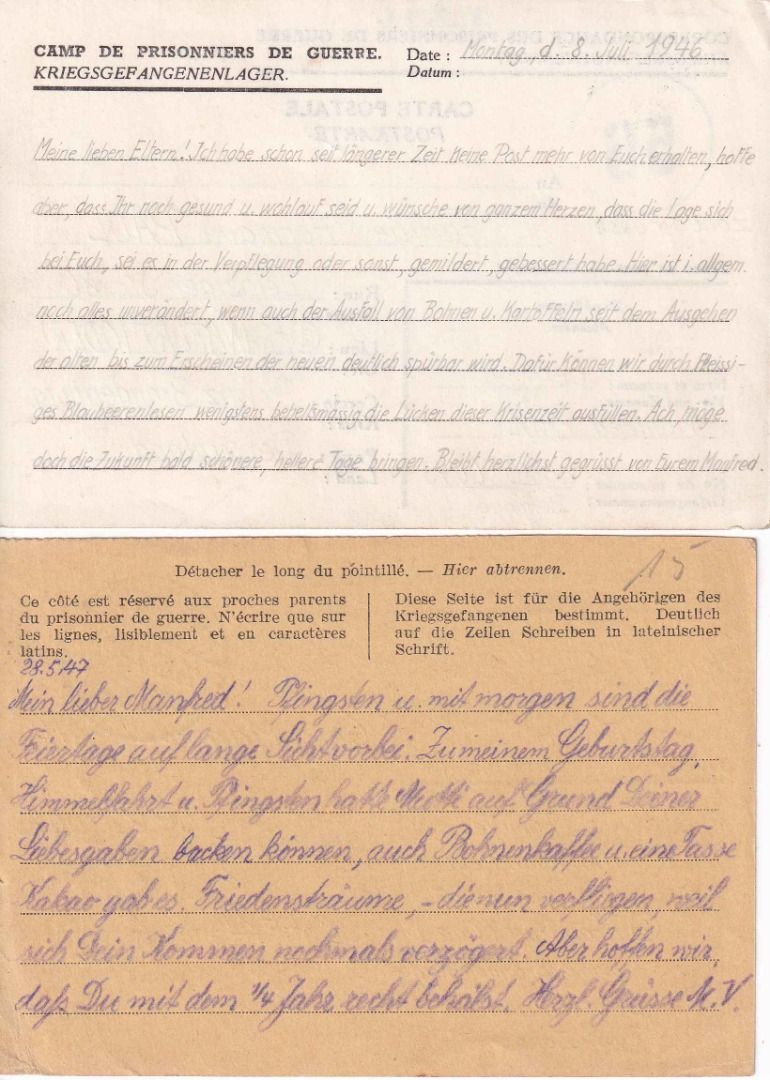 CAMP DE PRISONNIERS DE GUERRE.
KRIEGSGEFANGENENLAGER.
Date : Montag, d. 8. Juli 1946.
Datum :
Meine lieben Eltern! Ich habe schon seit längerer Zeit keine Post mehr von Euch erhalten, hoffe
aber, dass Ihr noch gesund u. wohlauf seid u. wünsche von ganzem Herzen, dass die Lage sich
bei Euch, sei es in der Verpflegung oder sonst, gemildert, gebessert habe. Hier ist i. allgem.
noch alles unverändert, wenn auch der Ausfall von Bohnen u. Kartoffeln seit dem Ausgehen
der alten bis zum Erscheinen der neuen deutlich spürbar wird. Dafür können wir durch fleissi-
ges Blaubeerenlesen wenigstens behelfsmässig die Lücken dieser Krisenzeit ausfüllen. Ach, möge
doch die Zukunft bald schönere, hellere Tage bringen. Bleibt herzlichst gegrüsst von Eurem Manfred.
Détacher le long du pointillé. — Hier abtrennen.
15
Ce côté est réservé aux proches parents
du prisonnier de guerre. N'écrire que sur
les lignes, lisiblement et en caractères
latins.
Diese Seite ist für die Angehörigen des
Kriegsgefangenen bestimmt. Deutlich
auf die Zeilen Schreiben in lateinischer
Schrift.
28.5.47
Mein lieber Manfred! Pfingsten u. mit morgen sind die
Feiertage auf lange Sicht vorbei. Zu meinem Geburtstag,
Himmelfahrt u. Pfingsten hatte Mutti auf Grund Deiner
Liebesgaben backen können, auch Bohnenkaffee u. eine Tasse
Kakao gab es. Friedensträume, – die nun verfliegen, weil
sich Dein Kommen nochmals verzögert. Aber hoffen wir,
daß Du mit dem 1/4 Jahr recht behälst. Herzl. Grüsse M. V.